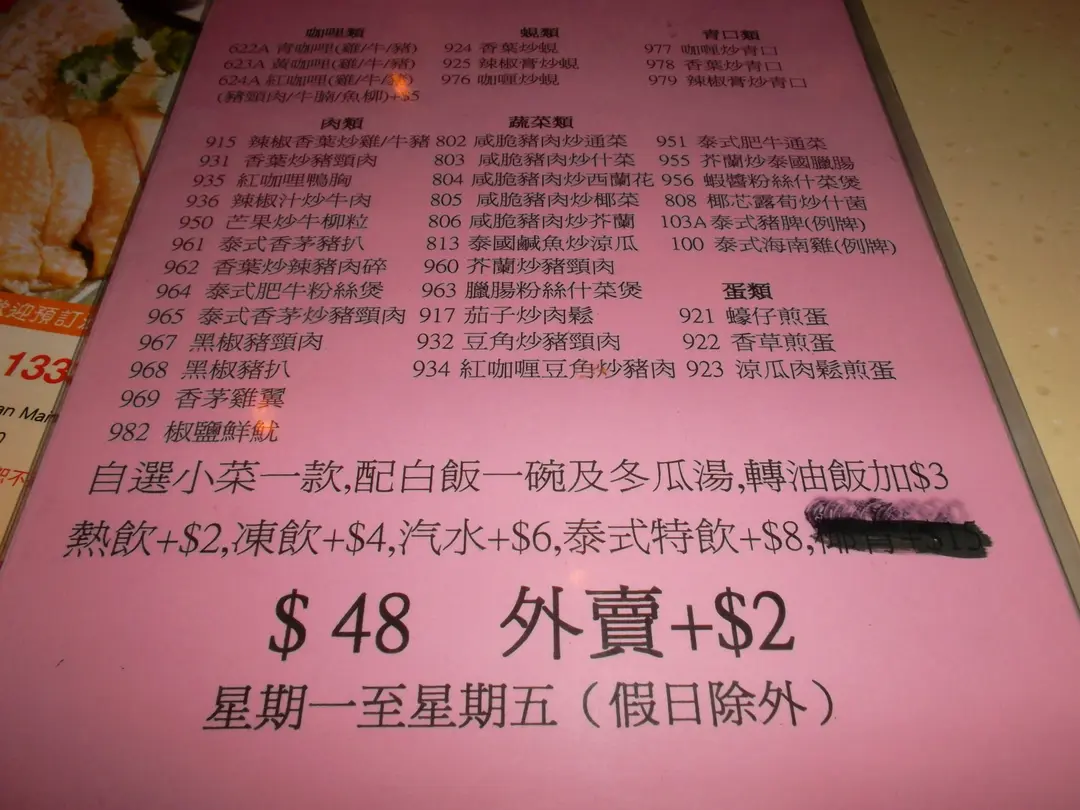 咖喱類 蜆類 青口類
622A 青咖喱(雞/牛/豬) 924 香葉炒蜆 977 咖喱炒青口
623A 黃咖喱(雞/牛/豬) 925 辣椒膏炒蜆 978 香葉炒青口
624A 紅咖喱(雞/牛/豬) 976 咖喱炒蜆 979 辣椒膏炒青口
(豬頸肉/牛腩/魚柳)+$5
肉類 蔬菜類
915 辣椒香葉炒雞/牛豬 802 咸脆豬肉炒通菜 951 泰式肥牛通菜
931 香葉炒豬頸肉 803 咸脆豬肉炒什菜 955 芥蘭炒泰國臘腸
935 紅咖喱鴨胸 804 咸脆豬肉炒西蘭花 956 蝦醬粉絲什菜煲
936 辣椒汁炒牛肉 805 咸脆豬肉炒椰菜 808 椰芯露荀炒什菌
950 芒果炒牛柳粒 806 咸脆豬肉炒芥蘭 103A 泰式豬脾(例牌)
961 泰式香茅豬扒 813 泰國鹹魚炒涼瓜 100 泰式海南雞(例牌)
962 香葉炒辣豬肉碎 960 芥蘭炒豬頸肉
964 泰式肥牛粉絲煲 963 臘腸粉絲什菜煲 蛋類
965 泰式香茅炒豬頸肉 917 茄子炒肉鬆 921 蠔仔煎蛋
967 黑椒豬頸肉 932 豆角炒豬頸肉 922 香草煎蛋
968 黑椒豬扒 934 紅咖喱豆角炒豬肉 923 涼瓜肉鬆煎蛋
969 香茅雞翼
982 椒鹽鮮魷
自選小菜一款,配白飯一碗及冬瓜湯,轉油飯加$3
熱飲+$2,凍飲+$4,汽水+$6,泰式特飲+$8,
$ 48 外賣+$2
星期一至星期五（假日除外）
迎預訂
133
an Man